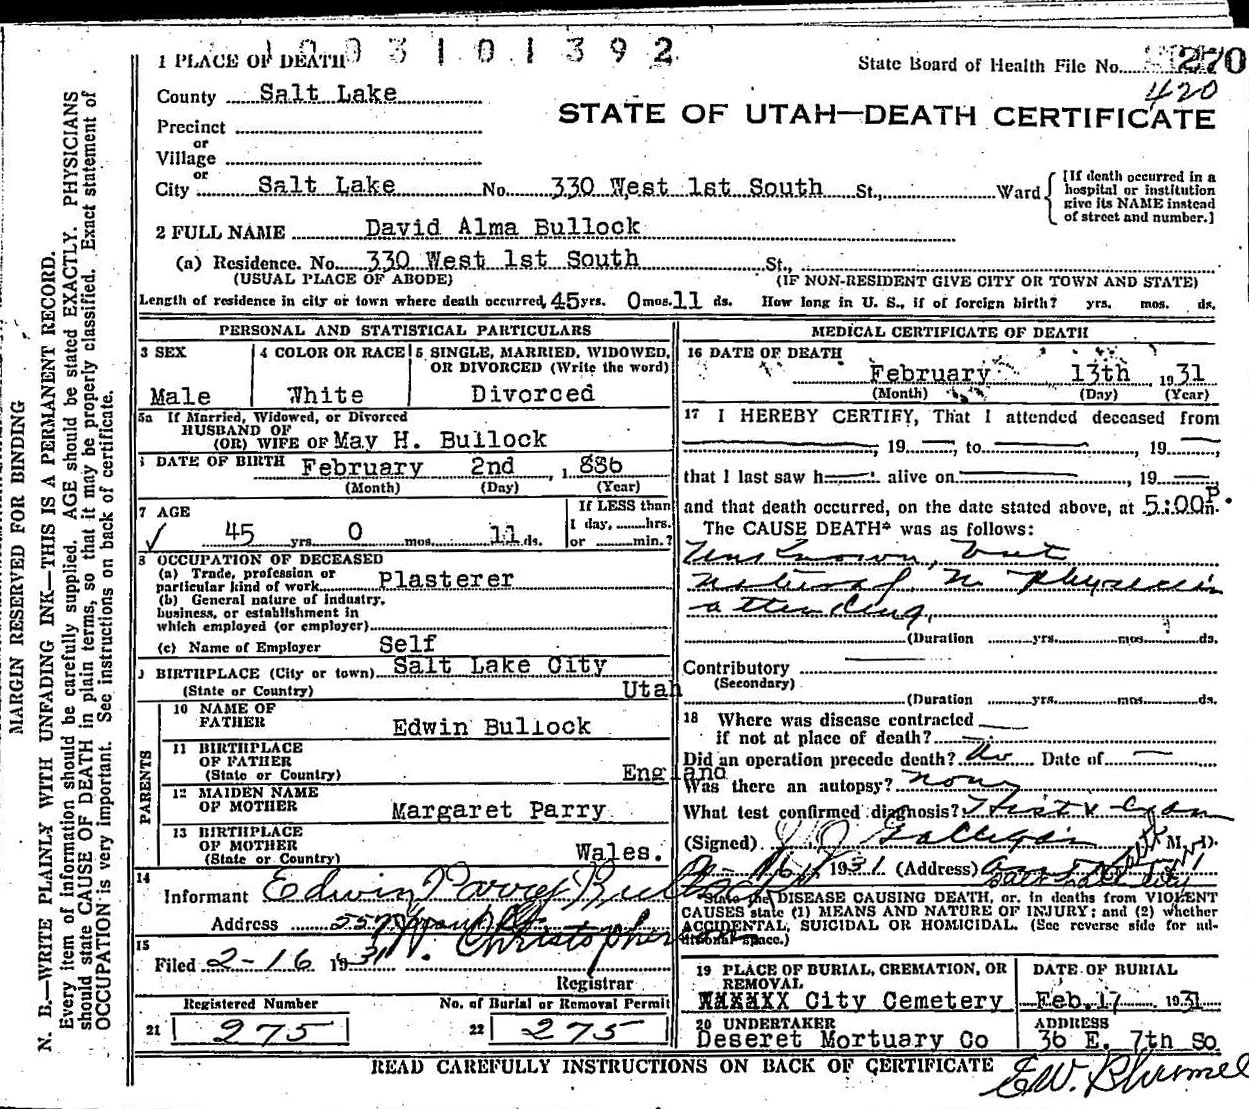 1003101392
1 PLACE OF DEATH
State Board of Health File No. 270
420
County Salt Lake
STATE OF UTAH—DEATH CERTIFICATE
Precinct
or
Village
or
City Salt Lake No. 330 West 1st South St., Ward
[If death occurred in a
hospital or institution
give its NAME instead
of street and number.]
2 FULL NAME David Alma Bullock
(a) Residence. No. 330 West 1st South St.,
(USUAL PLACE OF ABODE) (IF NON-RESIDENT GIVE CITY OR TOWN AND STATE)
Length of residence in city or town where death occurred, 45 yrs. 0 mos. 11 ds. How long in U. S., if of foreign birth? yrs. mos. ds.
PERSONAL AND STATISTICAL PARTICULARS
3 SEX
Male
4 COLOR OR RACE
White
5 SINGLE, MARRIED, WIDOWED,
OR DIVORCED (Write the word)
Divorced
5a If Married, Widowed, or Divorced
HUSBAND OF
(OR) WIFE OF May H. Bullock
DATE OF BIRTH February 2nd, 1886
(Month) (Day) (Year)
7 AGE
45 yrs. 0 mos. 11 ds.
If LESS than
1 day, hrs.
or min.?
8 OCCUPATION OF DECEASED
(a) Trade, profession or
particular kind of work Plasterer
(b) General nature of industry,
business, or establishment in
which employed (or employer)
(c) Name of Employer Self
BIRTHPLACE (City or town) Salt Lake City
(State or Country) Utah
PARENTS
10 NAME OF
FATHER Edwin Bullock
11 BIRTHPLACE
OF FATHER
(State or Country) England
12 MAIDEN NAME
OF MOTHER Margaret Parry
13 BIRTHPLACE
OF MOTHER
(State or Country) Wales.
14
Informant Edwin Parry Bullock
Address
15
Filed 2-16 1931 Christopherson
Registrar
Registered Number No. of Burial or Removal Permit
21 275 22 275
MEDICAL CERTIFICATE OF DEATH
16 DATE OF DEATH
February 13th 1931
(Month) (Day) (Year)
17 I HEREBY CERTIFY, That I attended deceased from
, 19 , to , 19 ,
that I last saw h alive on , 19
and that death occurred, on the date stated above, at 5:00 P m.
The CAUSE DEATH* was as follows:
Unknown, but
natural, no physician
attending.
(Duration yrs. mos. ds.
Contributory
(Secondary)
(Duration yrs. mos. ds.
18 Where was disease contracted
if not at place of death?
Did an operation precede death? No Date of
Was there an autopsy? none
What test confirmed diagnosis? Hist &
(Signed) Galligan M. D.
1931 (Address)
*State the DISEASE CAUSING DEATH, or, in deaths from VIOLENT
CAUSES state (1) MEANS AND NATURE OF INJURY; and (2) whether
ACCIDENTAL, SUICIDAL OR HOMICIDAL. (See reverse side for ad-
ditional space.)
19 PLACE OF BURIAL, CREMATION, OR
REMOVAL
City Cemetery
DATE OF BURIAL
Feb. 17 1931
20 UNDERTAKER
Deseret Mortuary Co
ADDRESS
36 E. 7th So.
READ CAREFULLY INSTRUCTIONS ON BACK OF CERTIFICATE
E.W.
MARGIN RESERVED FOR BINDING
N. B.—WRITE PLAINLY WITH UNFADING INK—THIS IS A PERMANENT RECORD.
Every item of information should be carefully supplied. AGE should be stated EXACTLY. PHYSICIANS
should state CAUSE OF DEATH in plain terms, so that it may be properly classified. Exact statement of
OCCUPATION is very important. See instructions on back of certificate.